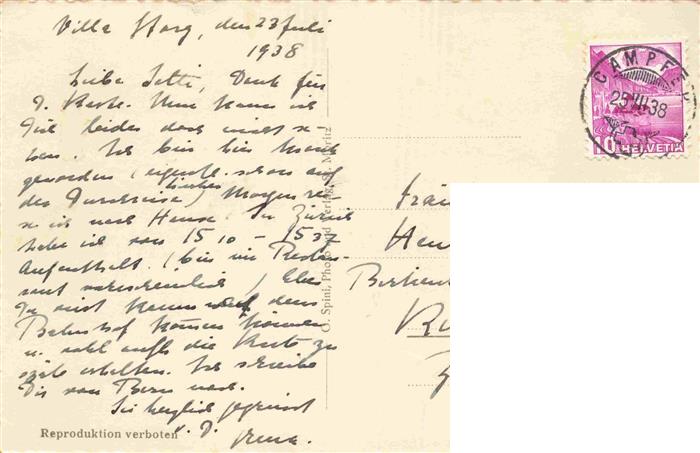 Villa Story, den 23 Juli
1938
Liebe Jetti, Dank für
d. Karte. Nun kann ich
Dich leider doch nicht se-
hen. Ich bin hier krank
geworden (eigentl. schon auf
der Durchreise) Morgen rei-
se ich nach Hause. In Zürich
habe ich von 15 10 – 15 37
Aufenthalt. (bin im Restau-
rant
Du wirst kaum dem
Bahnhof kommen können
u. wohl auch die Karte zu
spät erhalten. Ich schreibe
Dir von Bern
Sei herzlich gegrüsst
v. D. Irma.
Reproduktion verboten
O. Spini, Photo und Verlag, St. Moritz
CAMPFÈ
25.VII.38
10 HELVETIA
Fräu
Hen
Birken